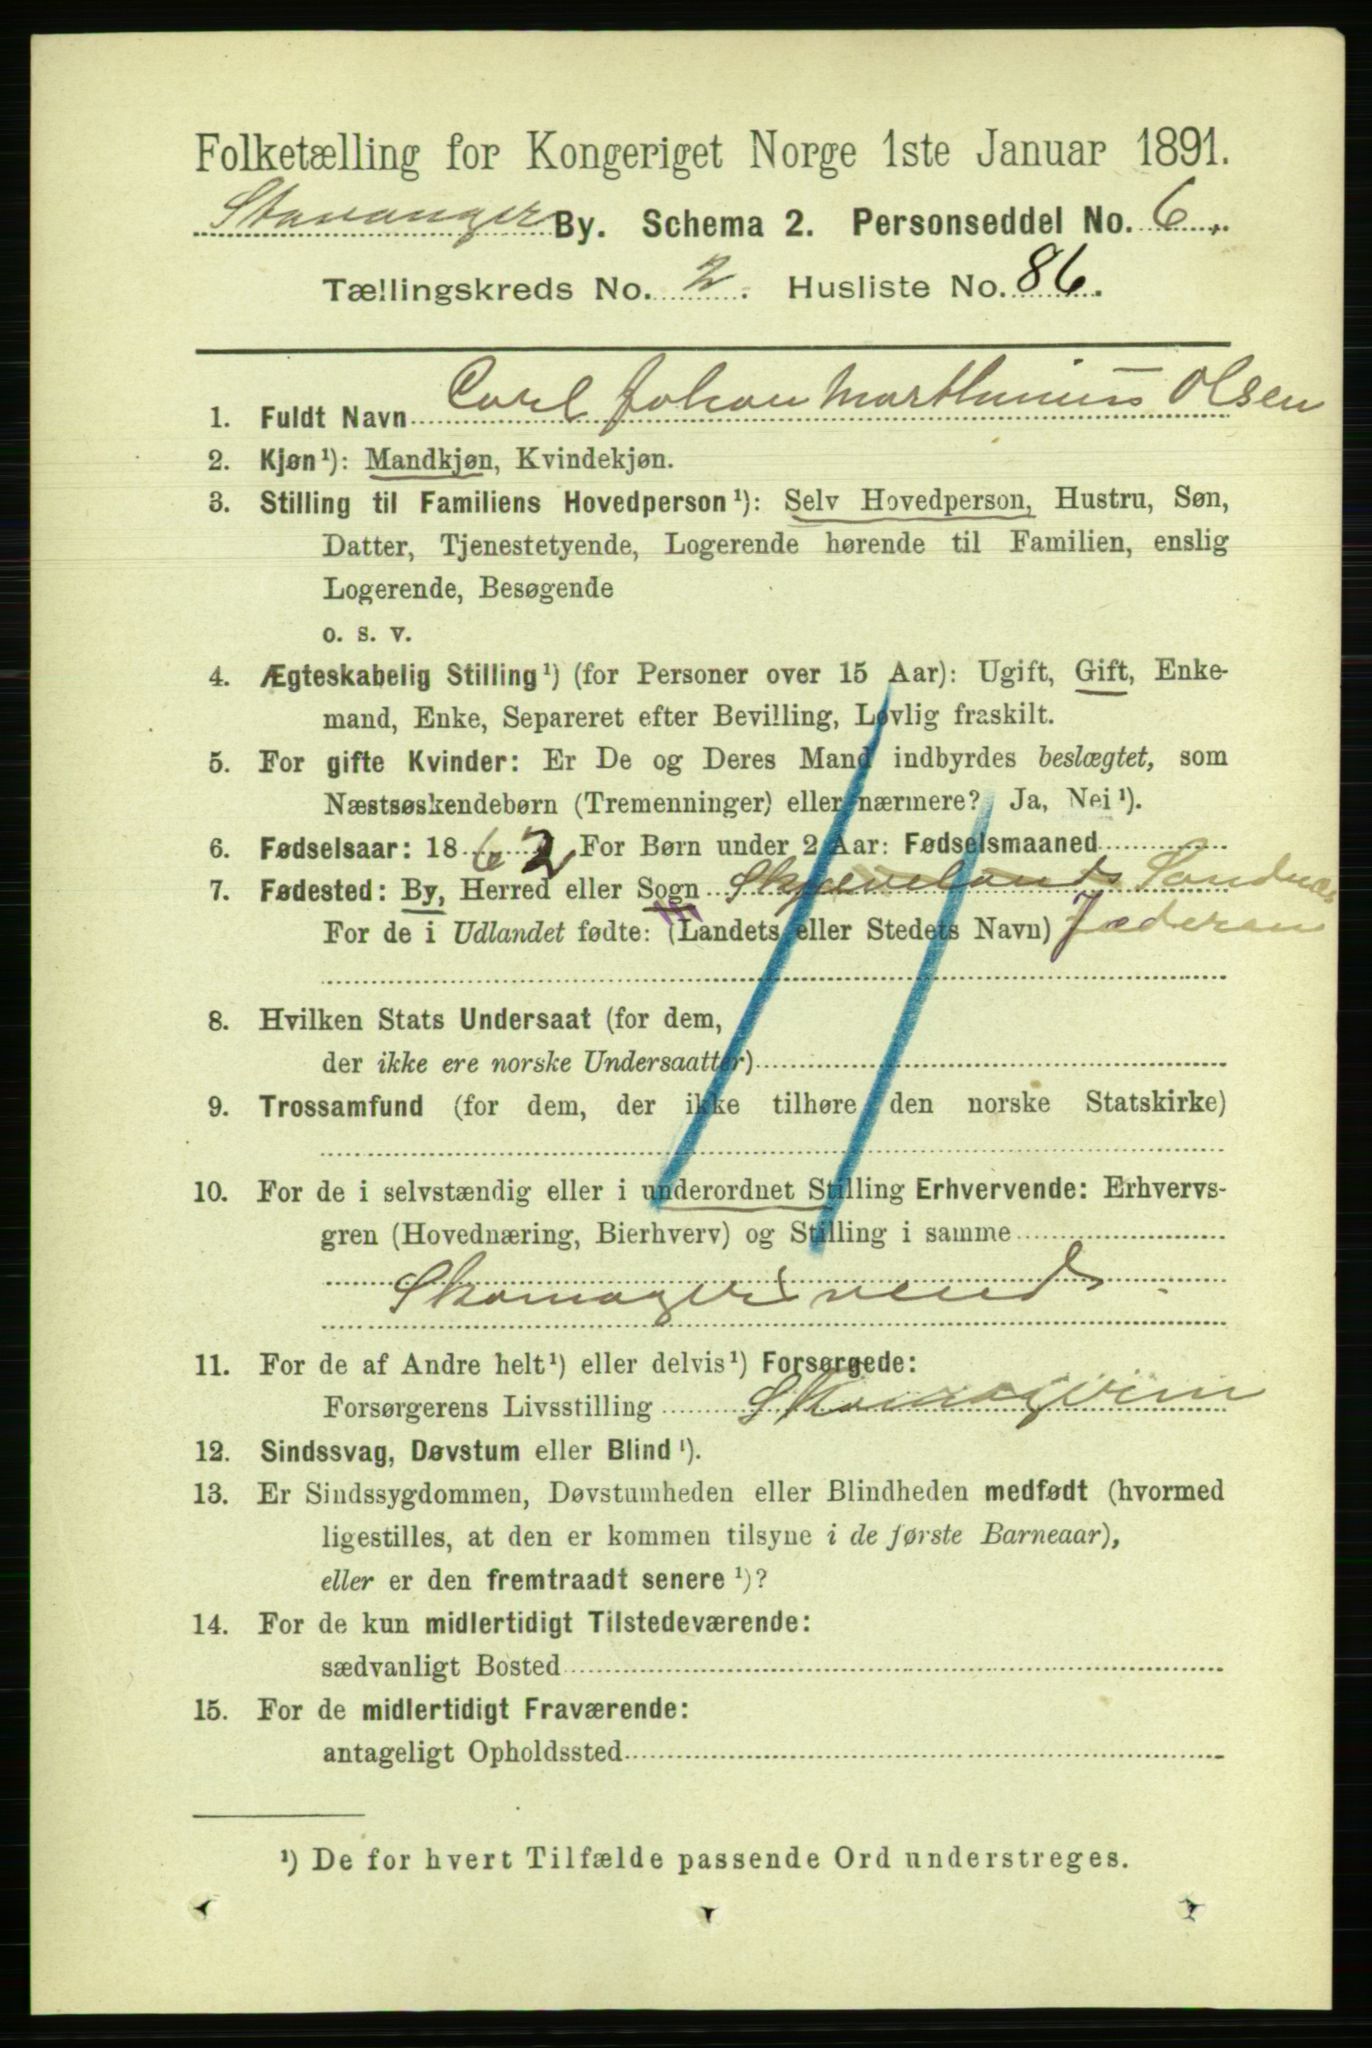 Folketælling for Kongeriget Norge 1ste Januar 1891.
Stavanger By. Schema 2. Personseddel No. 6.
Tællingskreds No. 2. Husliste No. 86.
1. Fuldt Navn Carl Johan Marthinius Olsen
2. Kjøn¹): Mandkjøn, Kvindekjøn.
3. Stilling til Familiens Hovedperson¹): Selv Hovedperson, Hustru, Søn,
Datter, Tjenestetyende, Logerende hørende til Familien, enslig
Logerende, Besøgende
o. s. v.
4. Ægteskabelig Stilling¹) (for Personer over 15 Aar): Ugift, Gift, Enke-
mand, Enke, Separeret efter Bevilling, Lovlig fraskilt.
5. For gifte Kvinder: Er De og Deres Mand indbyrdes beslægtet, som
Næstsøskendebørn (Tremenninger) eller nærmere? Ja, Nei¹).
6. Fødselsaar: 1862 For Børn under 2 Aar: Fødselsmaaned
7. Fødested: By, Herred eller Sogn Skjævelands Sandnæs
For de i Udlandet fødte: (Landets eller Stedets Navn) Jæderen
8. Hvilken Stats Undersaat (for dem,
der ikke ere norske Undersaatter)
9. Trossamfund (for dem, der ikke tilhøre den norske Statskirke)
10. For de i selvstændig eller i underordnet Stilling Erhvervende: Erhvervs-
gren (Hovednæring, Bierhverv) og Stilling i samme
Skomagersvend.
11. For de af Andre helt¹) eller delvis¹) Forsørgede:
Forsørgerens Livsstilling
12. Sindssvag, Døvstum eller Blind¹).
13. Er Sindssygdommen, Døvstumheden eller Blindheden medfødt (hvormed
ligestilles, at den er kommen tilsyne i de første Barneaar),
eller er den fremtraadt senere¹)?
14. For de kun midlertidigt Tilstedeværende:
sædvanligt Bosted
15. For de midlertidigt Fraværende:
antageligt Opholdssted
¹) De for hvert Tilfælde passende Ord understreges.